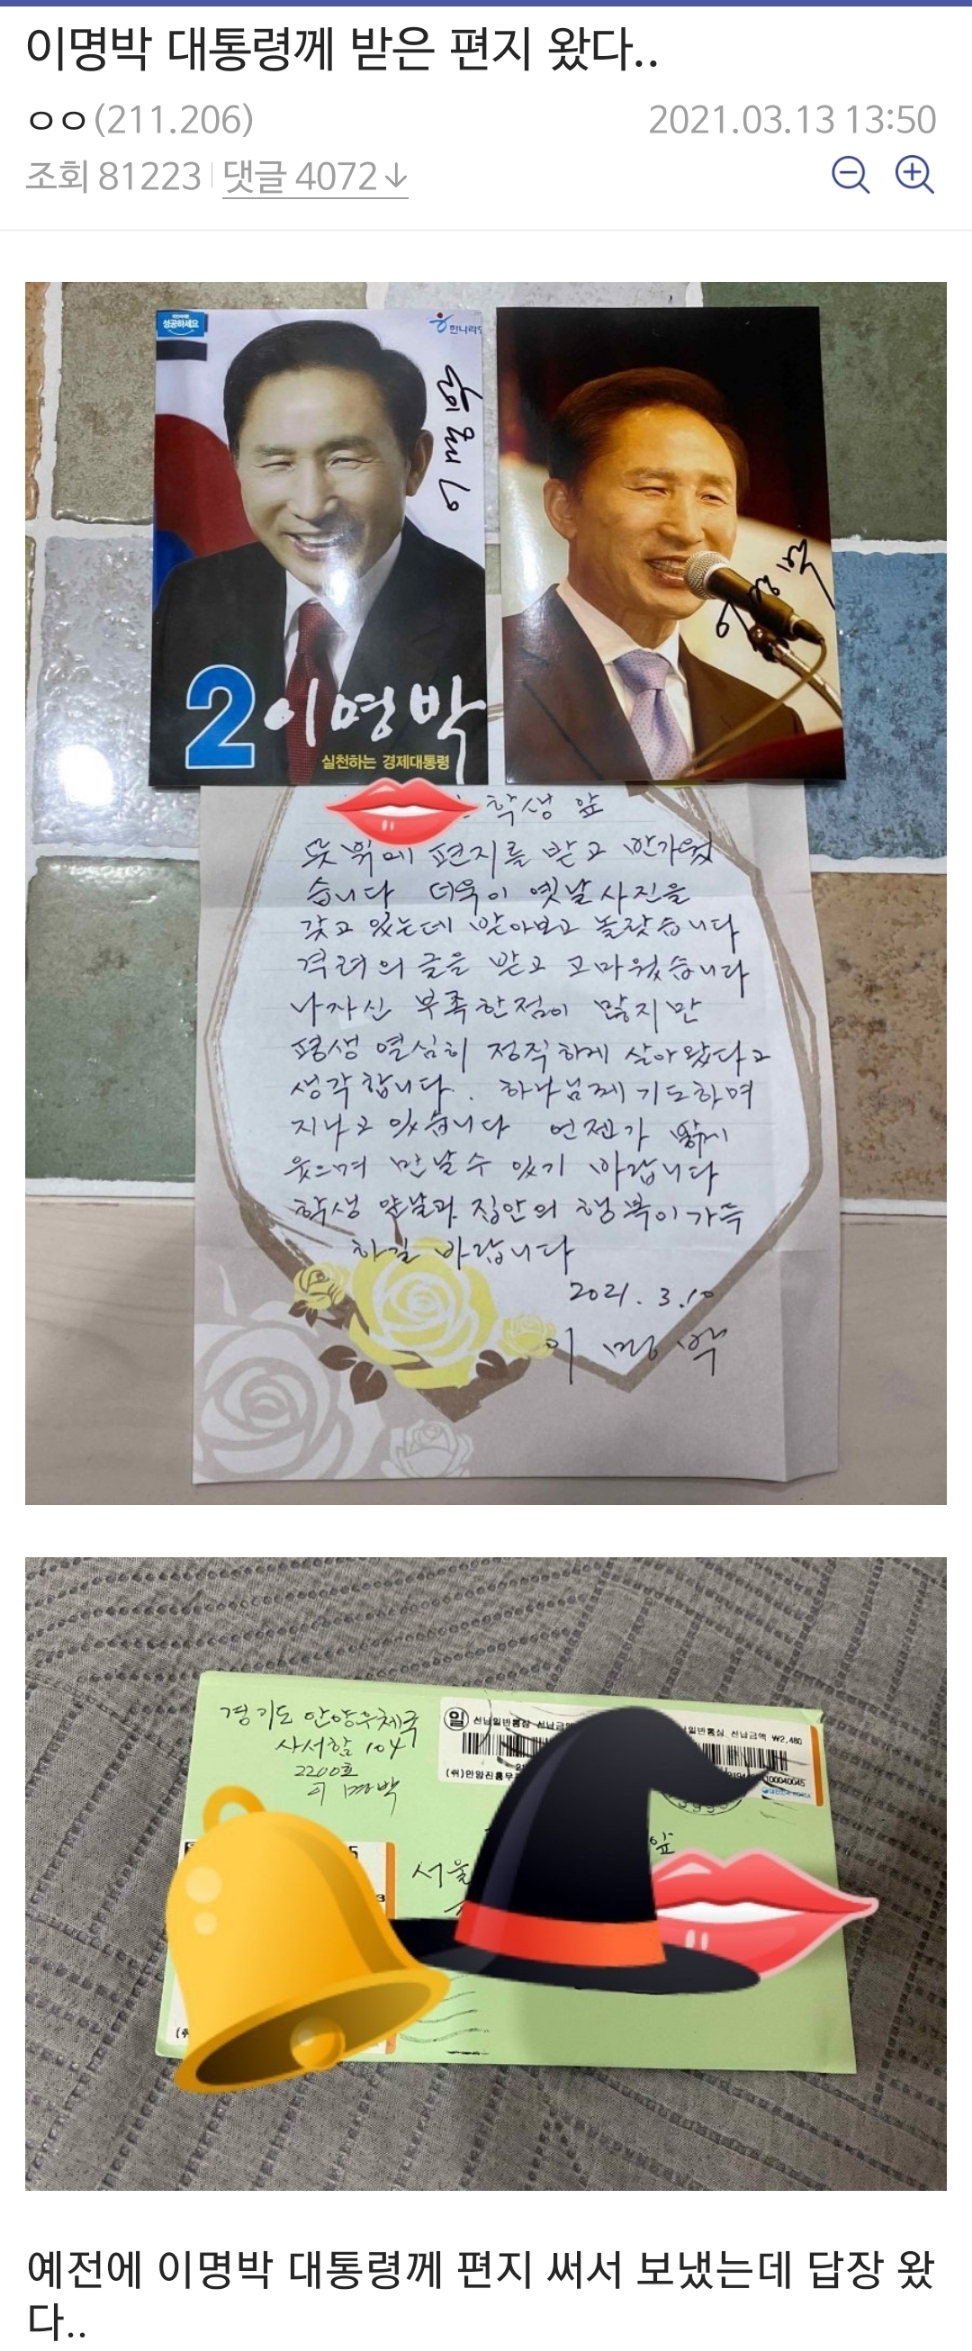 이명박 대통령께 받은 편지 왔다..
ㅇㅇ(211.206)
2021.03.13 13:50
조회 81223
댓글 4072↓
성공하세요
한나라
2 이명박
실천하는 경제대통령
이명박
학생 앞
뜻밖에 편지를 받고 반가웠
습니다 더욱이 옛날사진을
갖고 있는데 받아보고 놀랐습니다
격려의 글을 받고 고마웠습니다
나 자신 부족한점이 많지만
평생 열심히 정직하게 살아왔다고
생각합니다. 하나님께 기도하며
지나고 있습니다 언젠가 밖에서
웃으며 만날 수 있기 바랍니다
학생 앞날과 집안의 행복이 가득
하길 바랍니다
2021. 3. 10
이명박
경기도 안양우체국
사서함 104
2200호
이명박
일
선납일반통상 선납금액
일반통상 선납금액 ₩2,480
(취)안양진흥우
앞
서울
예전에 이명박 대통령께 편지 써서 보냈는데 답장 왔
다..